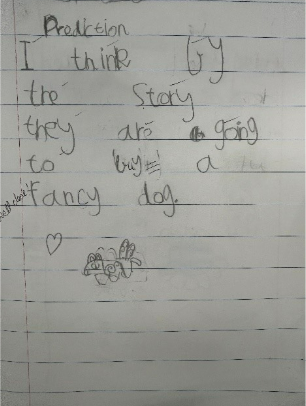 Prediction
I think by
the Story
they are going
to buy a
fancy dog.